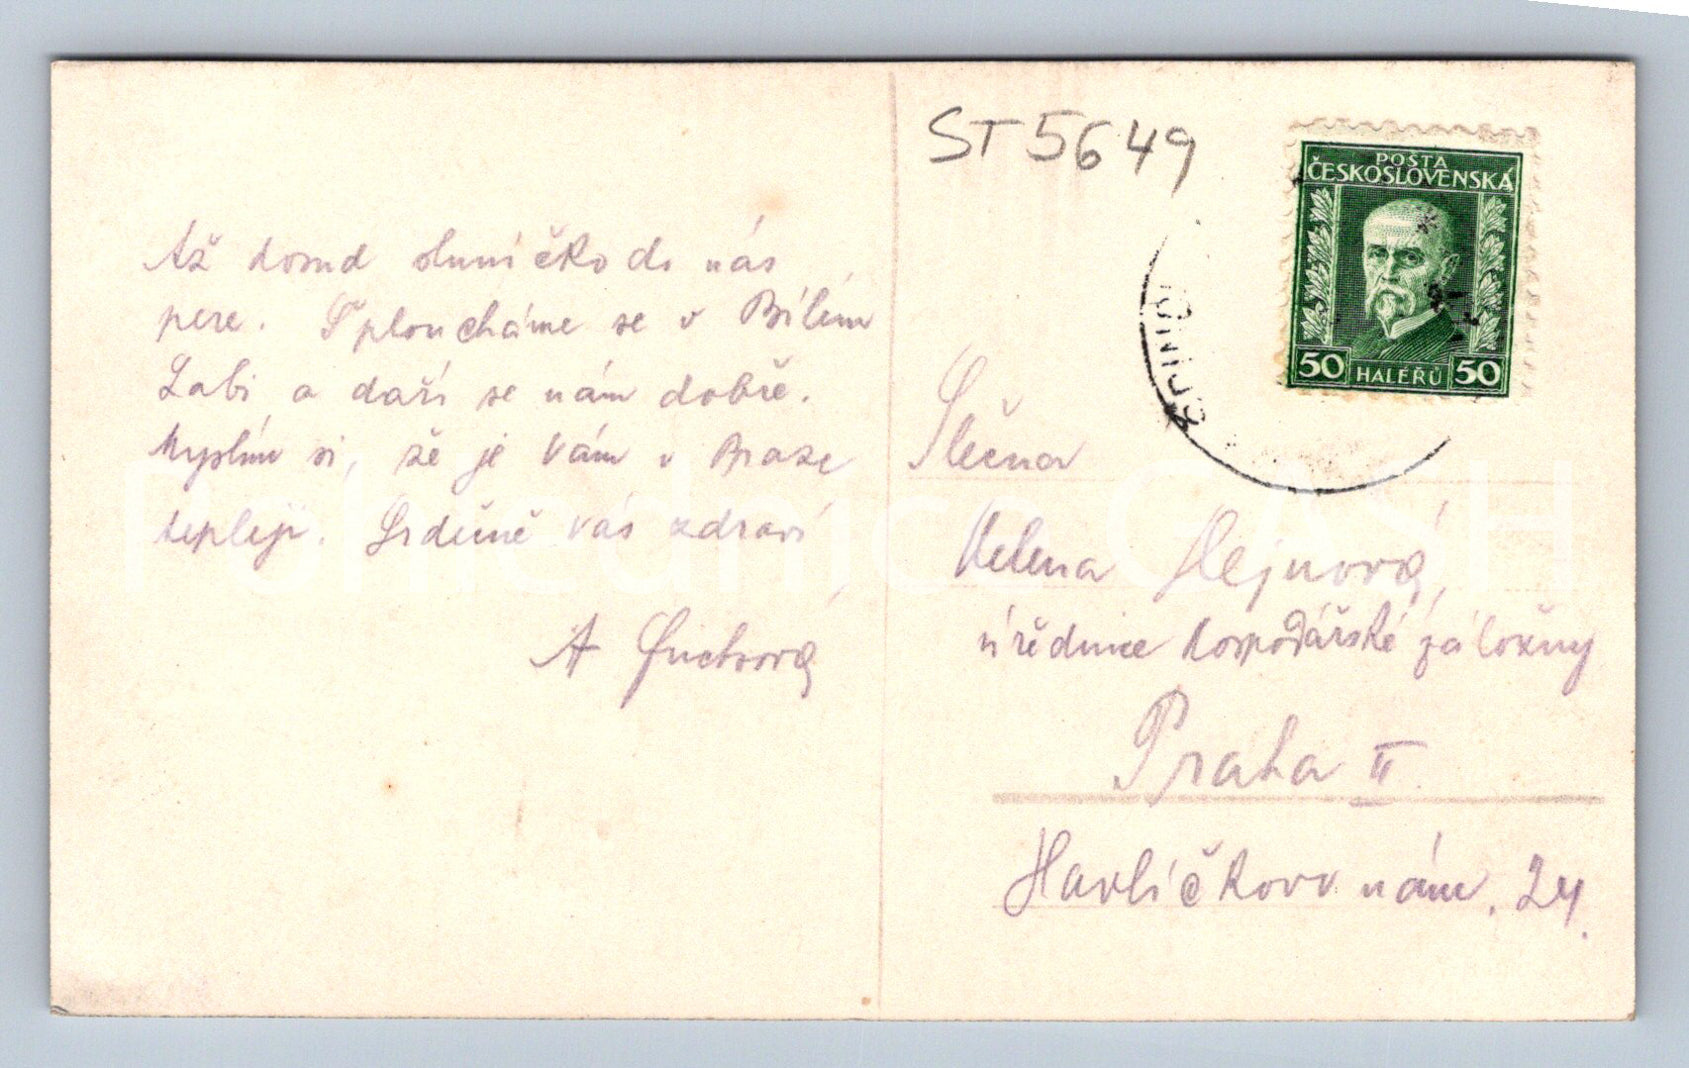 Až dosud sluníčko do nás
pere. Šploucháme se v Bílém
Labi a daří se nám dobře.
Myslím si, že je Vám v Praze
tepleji. Srdečně Vás zdraví
A Fuchsová
ST 5649
POŠTA
ČESKOSLOVENSKÁ
50 HALÉŘŮ 50
Slečna
Helena Hejnová,
úřednice Hospodářské záložny
Praha II.
Havlíčkovo nám. 24.
Pohlednice CASH